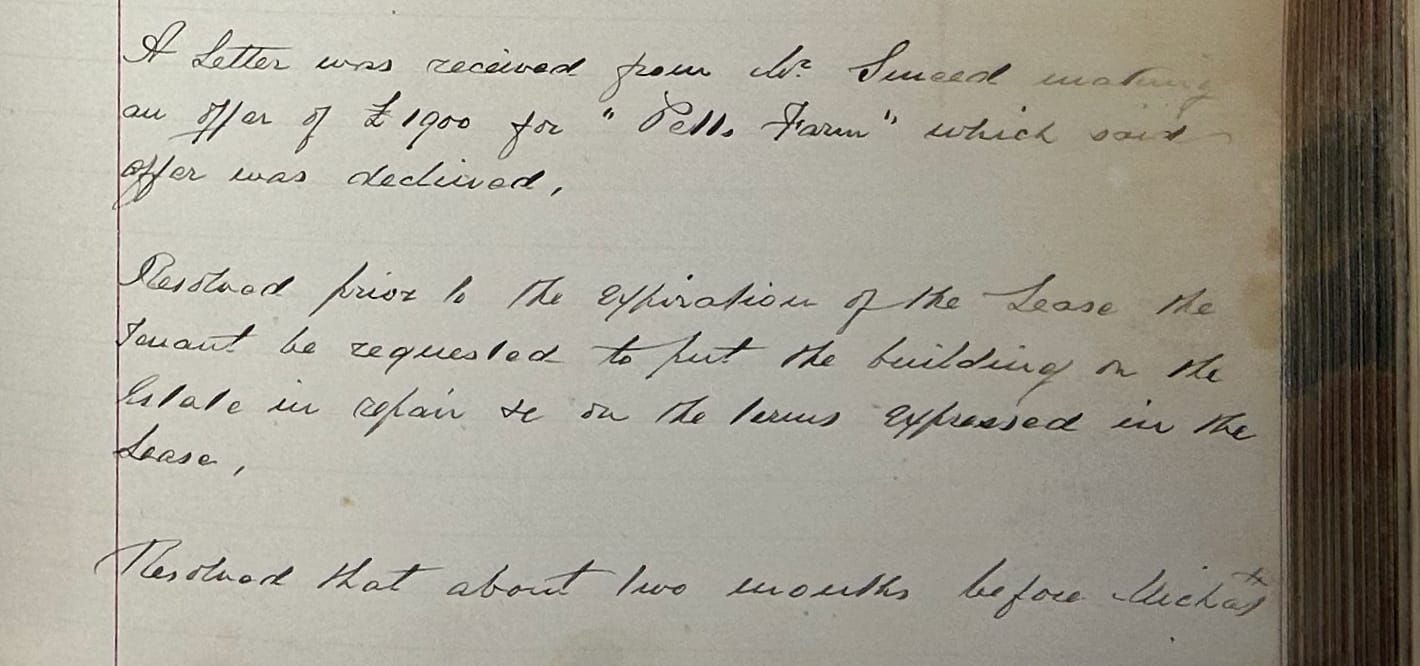 A Letter was received from Mr. Smeed making
an offer of £1900 for "Pells Farm" which said
offer was declined,
Resolved prior to the expiration of the Lease the
tenant be requested to put the building on the
Estate in repair &c on the terms expressed in the
Lease,
Resolved that about two months before